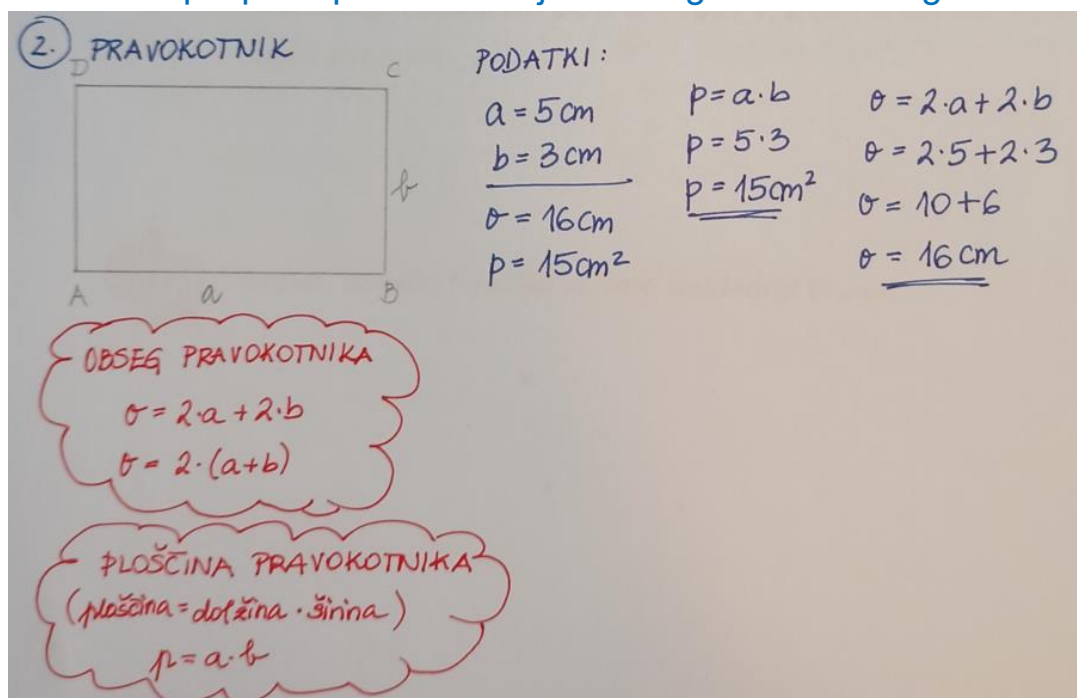 2. PRAVOKOTNIK
D
C
b
A
a
B
PODATKI:
a = 5 cm
b = 3 cm
o = 16 cm
p = 15 cm²
p = a·b
p = 5·3
p = 15 cm²
o = 2·a + 2·b
o = 2·5 + 2·3
o = 10 + 6
o = 16 cm
OBSEG PRAVOKOTNIKA
o = 2·a + 2·b
o = 2·(a+b)
PLOŠČINA PRAVOKOTNIKA
(ploščina = dolžina · širina)
p = a·b